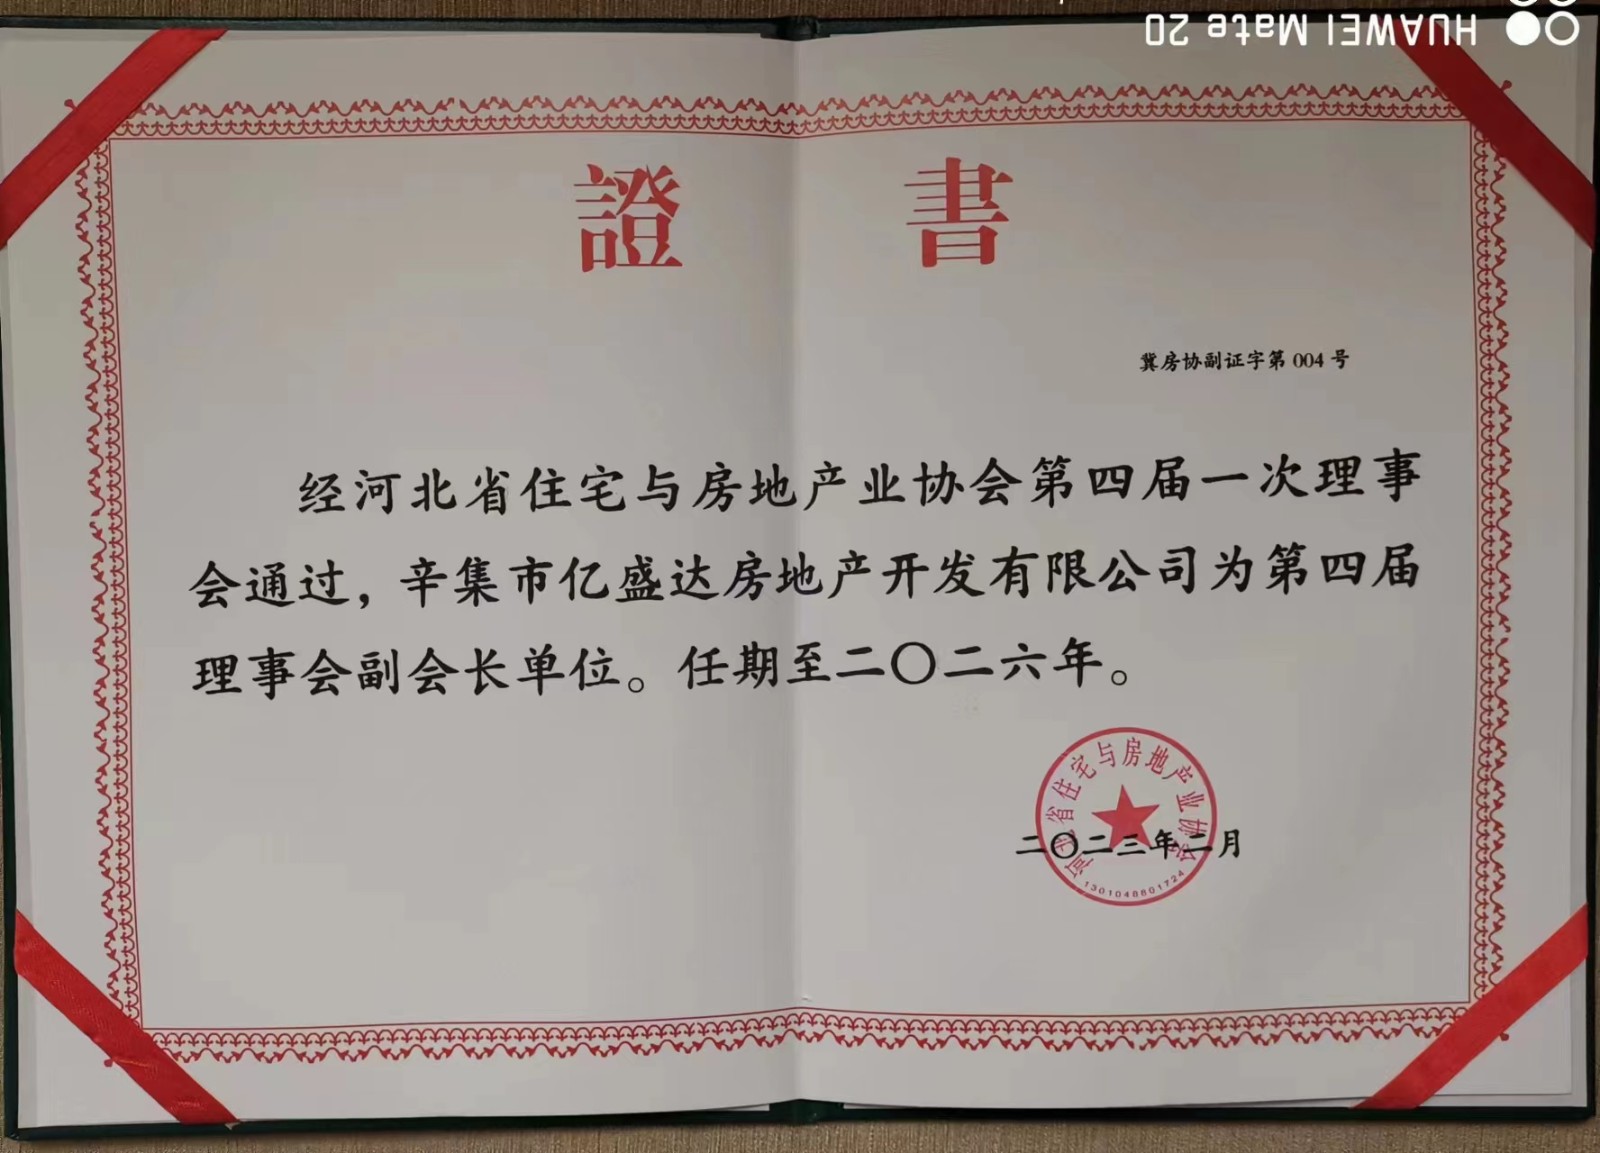 HUAWEI Mate 20
證 書
冀房协副证字第 004 号
经河北省住宅与房地产业协会第四届一次理事
会通过，辛集市亿盛达房地产开发有限公司为第四届
理事会副会长单位。任期至二〇二六年。
河北省住宅与房地产业协会
二〇二三年二月
1301048801724